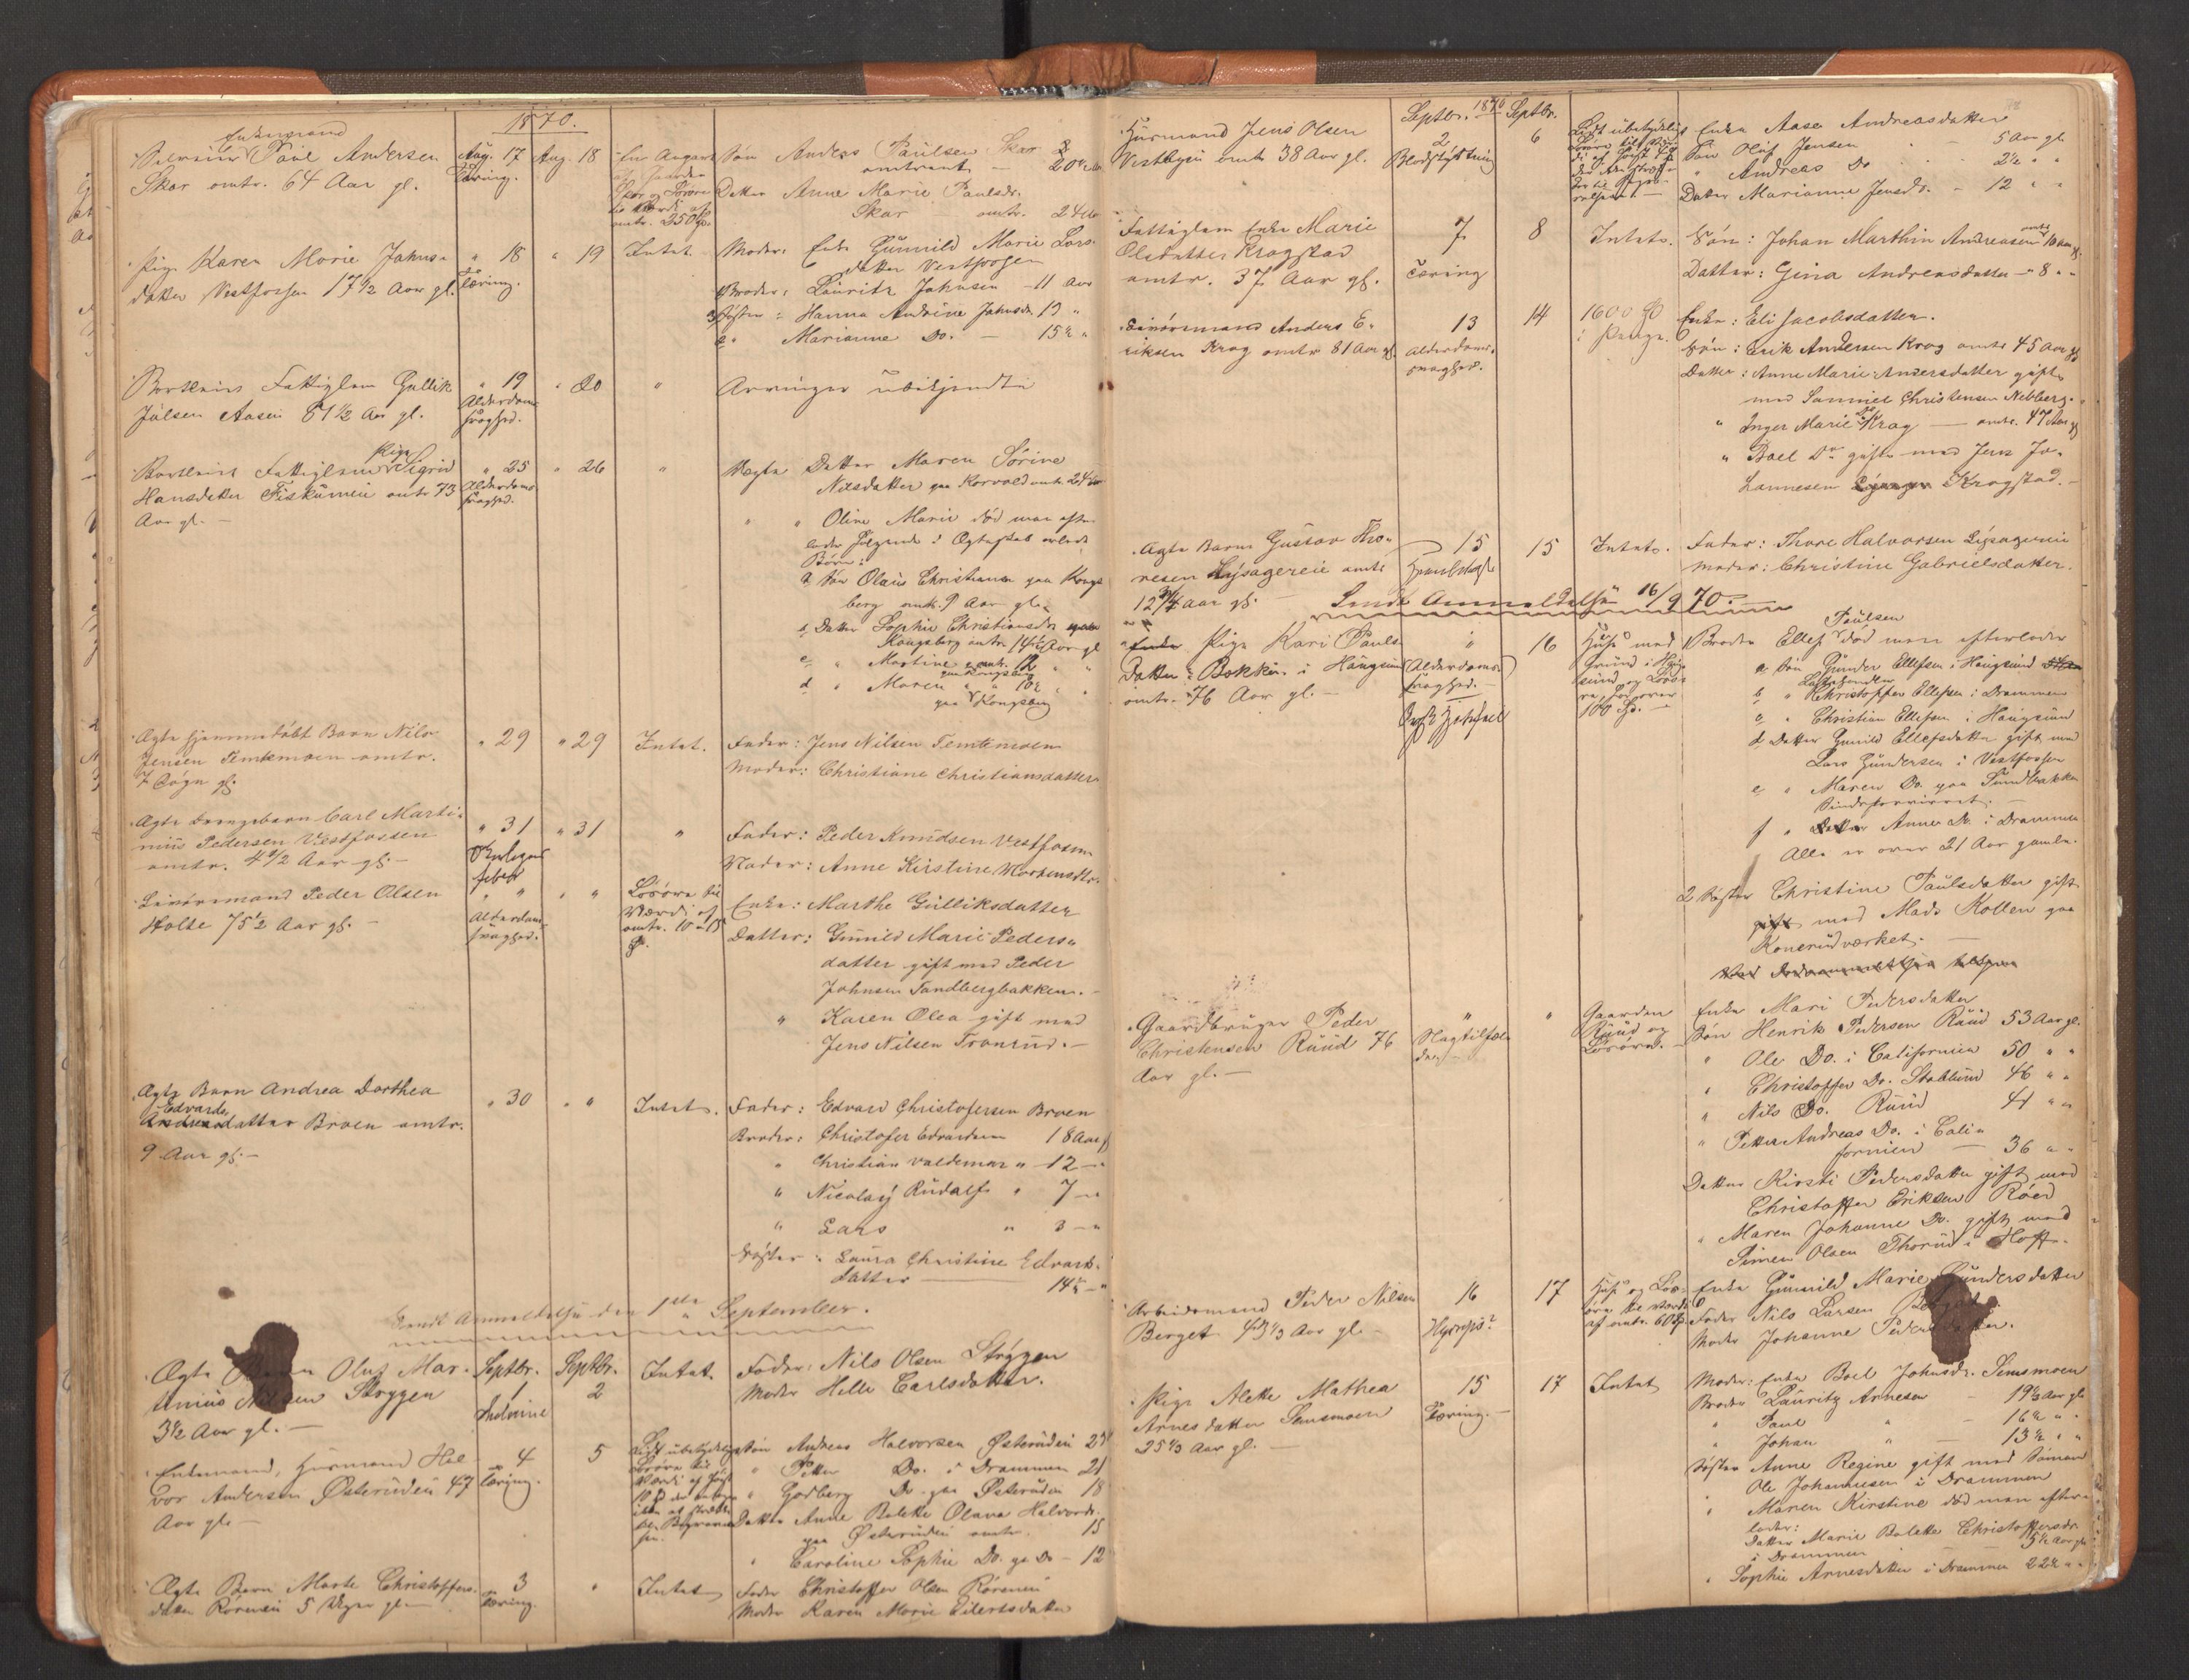 1870.
Enkemand
Selveier Paul Andersen
Skar omtr. 64 Aar gl.
Aug. 17
Tæring.
Aug. 18
Søn Anders Paulsen Skar
omtrent — 20
Datter Anne Marie Paulsdr.
Skar omtr. 24
omtr. 250
Pige Karen Marie Johns-
datter Vestfossen 17½ Aar gl.
" 18
Tæring.
" 19
Intet
Moder: Enke Gunnild Marie Lars-
datter Vestfossen
Broder: Lauritz Johnsen - 11 Aar
Søster: Hanna Andrine Johnsdr. 19 "
" Marianne Do. — 15½ "
Fattiglem Gullik
Julsen Aasen 81½ Aar gl.
" 19
Alderdoms
svaghed.
" 20
"
Arvinger ubekjendte
Pige
Fattiglem Sigrid
Hansdatter Fiskumeie omtr 73
Aar gl. —
" 25
Alderdoms
svaghed.
" 26
"
Ægte Datter Maren Sørine
Nilsdatter paa Korvald omtr. 24
" " Oline Marie død men efter-
lader følgende i Ægteskab avlede
Børn:
a Søn Olaus Christiansen paa Kongs-
berg omtr. 9 Aar gl.
b, Datter Sophie Christiansdr
Kongsberg omtr. 14½ Aar gl
c " Martine omtr. 12 " "
paa Kongsberg
d " Maren " " 10½ " "
paa Kongsberg
Ægte hjemmedøbt Barn Nils
Jensen Temtemoen omtr.
7 Døgn gl.
" 29
" 29
Intet.
Fader: Jens Nilsen Temtemoen
Moder: Christiane Christiansdatter
Ægte Drengebarn Carl Marti-
nius Pedersen Vestfossen
omtr. 4½ Aar gl. —
" 31
feber
" 31
"
Fader: Peder Knudsen Vestfossen
Moder: Anne Kirstine Mortensdtr.
Livørsmand Peder Olsen
Holte 75½ Aar gl. —
" "
Alderdoms
svaghed.
" "
Løsøre til
Værdi af
omtr. 10 a 15
Enke: Marthe Gulliksdatter
Datter: Gunild Marie Peders-
datter gift med Peder
Johnsen Sandbergbakken. —
" Karen Olea gift med
Jens Nilsen Tronrud. —
Ægte Barn Andrea Dorthea
Edvards
datter Broen omtr.
9 Aar gl. —
" 30
" "
Intet.
Fader: Edvard Christofersen Broen
Broder: Christofer Edvardsen 18 Aar gl
" Christian Valdemar " - 12 - "
" Nicolaÿ Rudolf " 7 - "
" Lars " 3 - "
Søster: Laura Christine Edvards-
datter — 14½ - "
Sendt Anmeldelse den 1ste September.
Ægte Barn Oluf Mar-
tinius Nilsen Strygen
3½ Aar gl. —
Septbr.
1
Septbr.
2
Intet.
Fader: Nils Olsen Strygen
Moder Helle Carlsdatter.
Enkemand, Husmand Hal-
vor Andersen Østerudeie 47
Aar gl. —
4
Tæring.
5
Lidt ubetydeligt
Løsøre til
Værdi af høist
Søn Andreas Halvorsen Østerudeie 23
" Petter Do. i Drammen 21
" Godberg Do. paa Østeruden 18
Datter Anne Bolette Olava Halvorsdr.
paa Østerudeie omtr. 15
" Caroline Sophie Do. paa Do - 12
Ægte Barn Marte Christoffers-
datter Rørneie 5 Uger gl. —
3
Tæring.
"
Intet
Fader Christoffer Olsen Rørneie
Moder Karen Marie Eilertsdatter
Husmand Jens Olsen
Vestbyeie omtr 38 Aar gl.
Septbr. 1870
2
Blodstyrtning
Septbr.
6
Lidt ubetydeligt
Løsøre til Vær-
di af høist
Enke Aase Andreasdatter
Søn Oluf Jensen - 5 Aar gl
" Andreas Do 2½ " "
Datter Marianne Jensdr. - 12 " "
Fattiglem Enke Marie
Olsdatter Kragstad
omtr. 37 Aar gl.
7
Tæring
8
Intet.
Søn: Johan Marthin Andreasen omtr 10 Aar gl.
Datter: Gina Andreasdatter - " 8 " "
Livørsmand Anders E-
riksen Krag omtr 81 Aar gl
13
Alderdoms-
svaghed.
14
1600
i Penge.
Enke: Eli Jacobsdatter.
Søn: Erik Andersen Krag omtr 45 Aar gl
Datter: Anne Marie Andersdatter gift
med Samuel Christensen Nebberg.
" Inger Marie Do Krag — omtr. 47 Aar gl
" Boel Do gift med Jens Jo-
hannesen Kragstad. —
Ægte Barn Gustav Tho-
resen Lysagereie omtr
12 3/4 Aar gl. —
15
15
Intet.
Fader: Thore Halvorsen Lysagereie
Moder: Christine Gabrielsdatter.
Sendt Anmeldelse 16/9 70.
Pige Kari Pauls
datter Bakken i Haugsund
omtr. 76 Aar gl. —
"
Alderdoms
svaghed. —
16
Huse med
Grund i Haug-
sund og Løsø-
re, for over
100 Spd. —
Paulsen
Broder Ellef død men efterlader
a Søn Gunder Ellefsen i Haugsund
b " Christoffer Ellefsen i Drammen
c " Christian Ellefsen i Haugsund
d Datter Gunild Ellefsdatter gift med
Lars Gundersen i Vestfossen
e " Maren Do. paa Sundbakken
Sindsforvirret. —
f " Anne Do. i Drammen
Alle er over 21 Aar gamle.
2 Søster Christine Paulsdatter gift
med Mads Kollen paa
Konerudverket. —
Gaardbruger Peder
Christensen Ruud 76
Aar gl. —
"
Slagtilfæl-
de. —
"
Gaarden
Ruud og
Løsøre. —
Enke Mari Pedersdatter
Søn Henrik Pedersen Ruud 53 Aar gl.
" Ole Do. i Californien 50 " "
" Christoffer Do. Stablum 46 " "
" Nils Do. Ruud 41 " "
" Petter Andreas Do. i Cali-
fornien — 36 " "
Datter Kirsti Pedersdatter gift med
Christoffer Eriksen Røed
" Maren Johanne Do. gift med
Simen Olsen Thorud i Hoff.
Arbeidsmand Peder Nilsen
Berget 43 1/3 Aar gl. —
16
17
Huse og Løs-
øre til Værdi
af omtr. 60
Enke Gunnild Marie Gundersdatter
Fader Nils Larsen
Moder Johanne Pedersdatter.
Pige Alette Mathea
Arnesdatter Semsmoen
25 1/3 Aar gl. —
15
Tæring. —
17
Intet
Moder: Enke Boel Johnsdr. Semsmoen
Broder Lauritz Arnesen - 19½ Aar gl
" Paul " - 16½ " "
" Johan " - 13½ " "
Søster Anne Regine gift med Sømand
Ole Johannesen i Drammen
" Maren Kirstine død men efter-
lader:
Datter Marie Bolette Christoffersdr.
i Drammen 5½ Aar gl
" Sophie Arnesdatter i Drammen 22½ " "